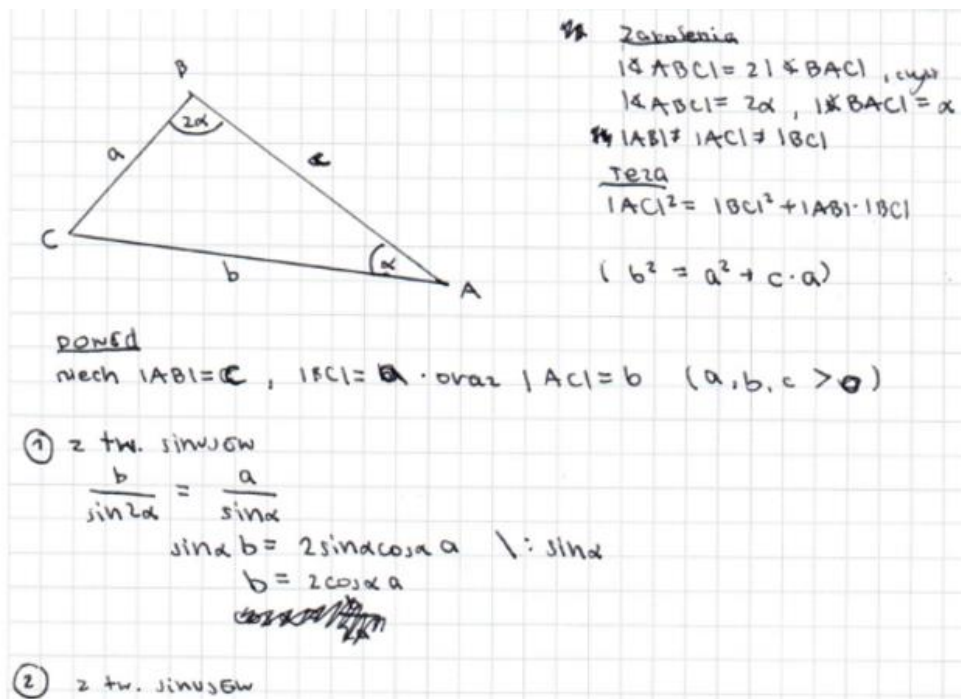 Założenia
|∢ABC| = 2|∢BAC|, czyli
|∢ABC| = 2α, |∢BAC| = α
|AB| ≠ |AC| ≠ |BC|
Teza
|AC|² = |BC|² + |AB|·|BC|
(b² = a² + c·a)
B
2α
a
c
C
α
b
A
DOWÓD
niech |AB| = c, |BC| = a. oraz |AC| = b (a, b, c > 0)
① z tw. sinusów
b/sin2α = a/sinα
sinα b = 2sinαcosα a \ : sinα
b = 2cosα a
② z tw. sinusów